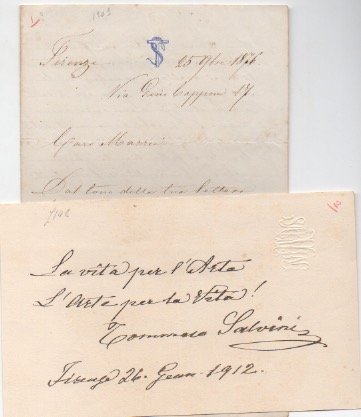 1903
Firenze 25 9bre 1876
Via Gino Capponi 17.
Caro
Dal tono della tua lettera
La vita per l'Arte
L'Arte per la Vita!
Tommaso Salvini
Firenze 26. Genn. 1912.